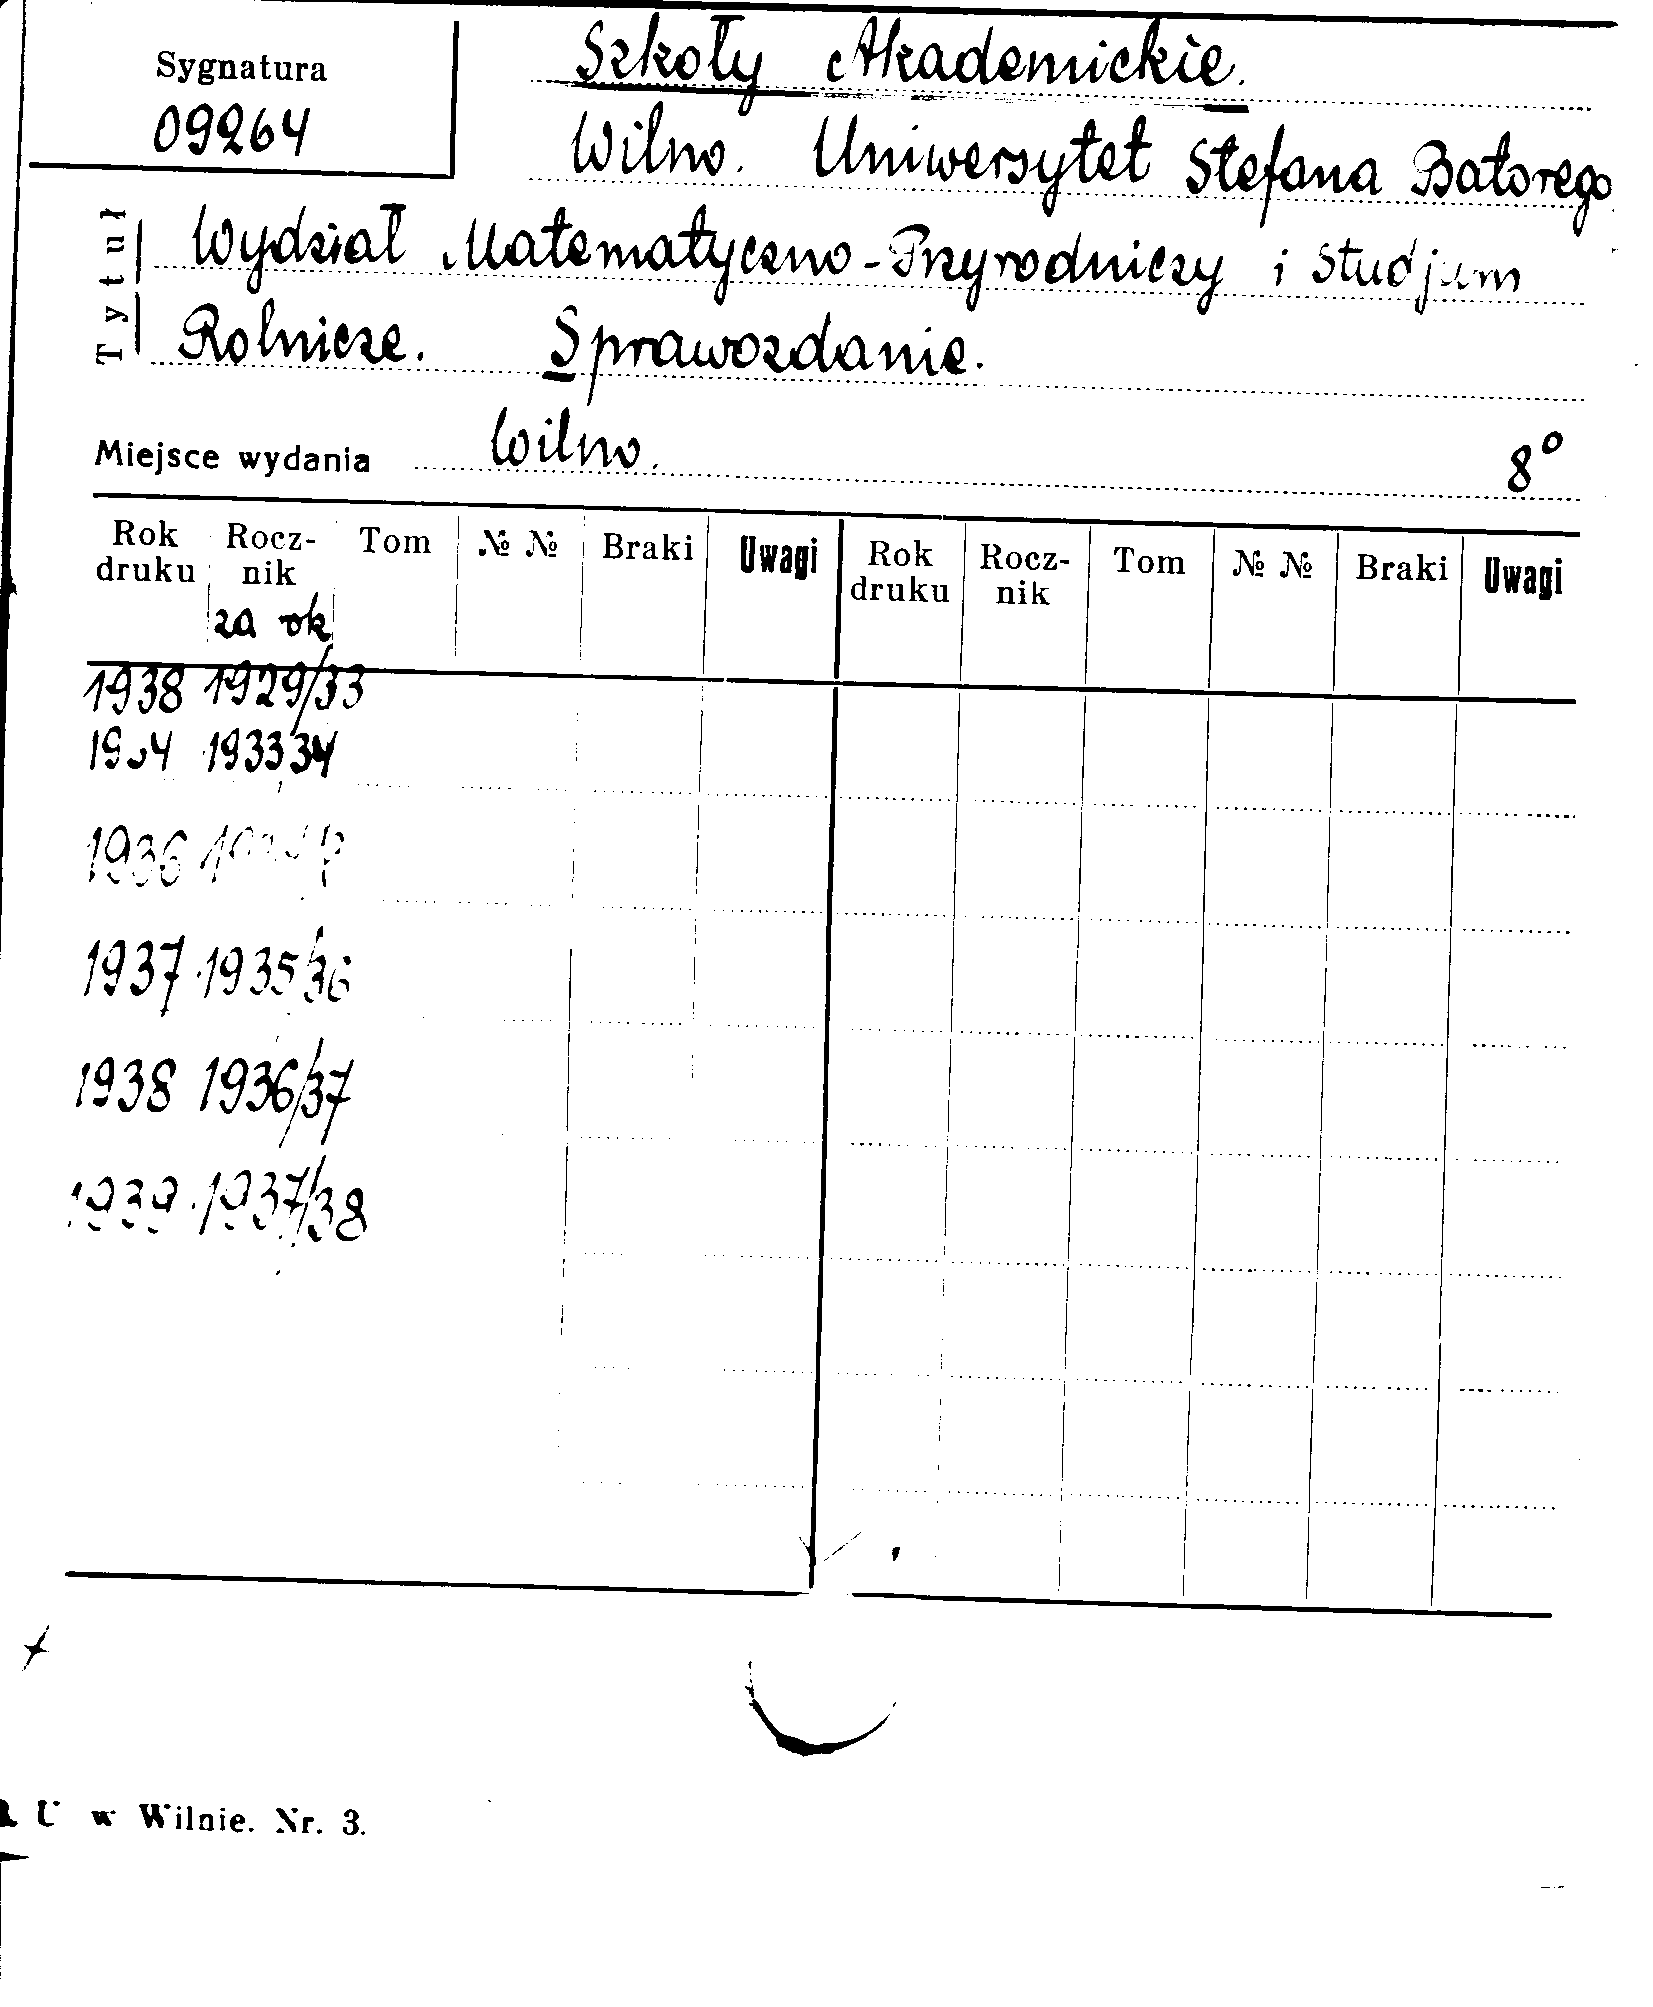 Sygnatura
09264
Szkoły Akademickie.
Wilno. Uniwersytet Stefana Batorego
Tytuł
Wydział Matematyczno-Przyrodniczy i Studjum
Rolnicze. Sprawozdanie.
Miejsce wydania Wilno. 8°
Rok druku Rocznik Tom № № Braki Uwagi Rok druku Rocznik Tom № № Braki Uwagi
za rok
1938 1929/33
1933 34
1936
1937 1935/36
1938 1936/37
1939 1937/38
U w Wilnie. Nr. 3.